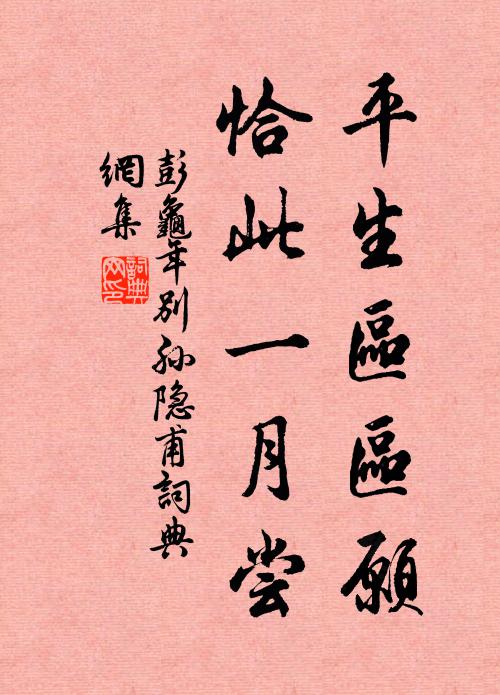 平生區區願
恰此一月尝
彭龜年別孙隐甫詞典
網集
詞典
网印